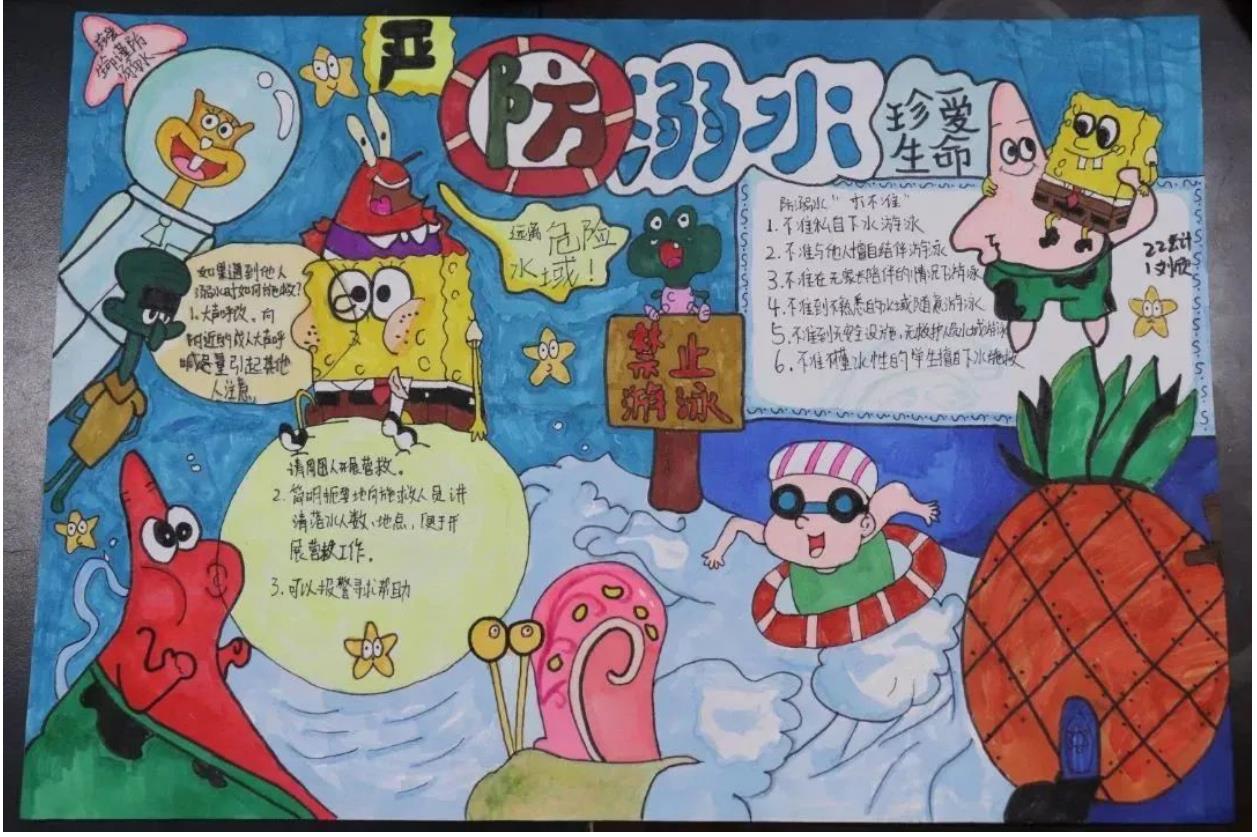 严
防
溺水
珍爱
生命
远离危险
水域！
禁止
游泳
防溺水"六不准"
1.不准私自下水游泳
2.不准与他人擅自结伴游泳
3.不准在无家长陪伴的情况下游泳
4.不准到不熟悉的水域随意游泳
5.不准到无安全设施、无救护人员水域游泳
6.不准不懂水性的学生擅自下水施救
22会计
如果遇到他人
溺水时如何施救？
1.大声呼救。向
附近的成人大声呼
喊尽量引起其他
人注意，
请周围人开展营救。
2.简明扼要地向施救人员讲
清落水人数、地点，便于开
展营救工作。
3.可以报警寻求帮助